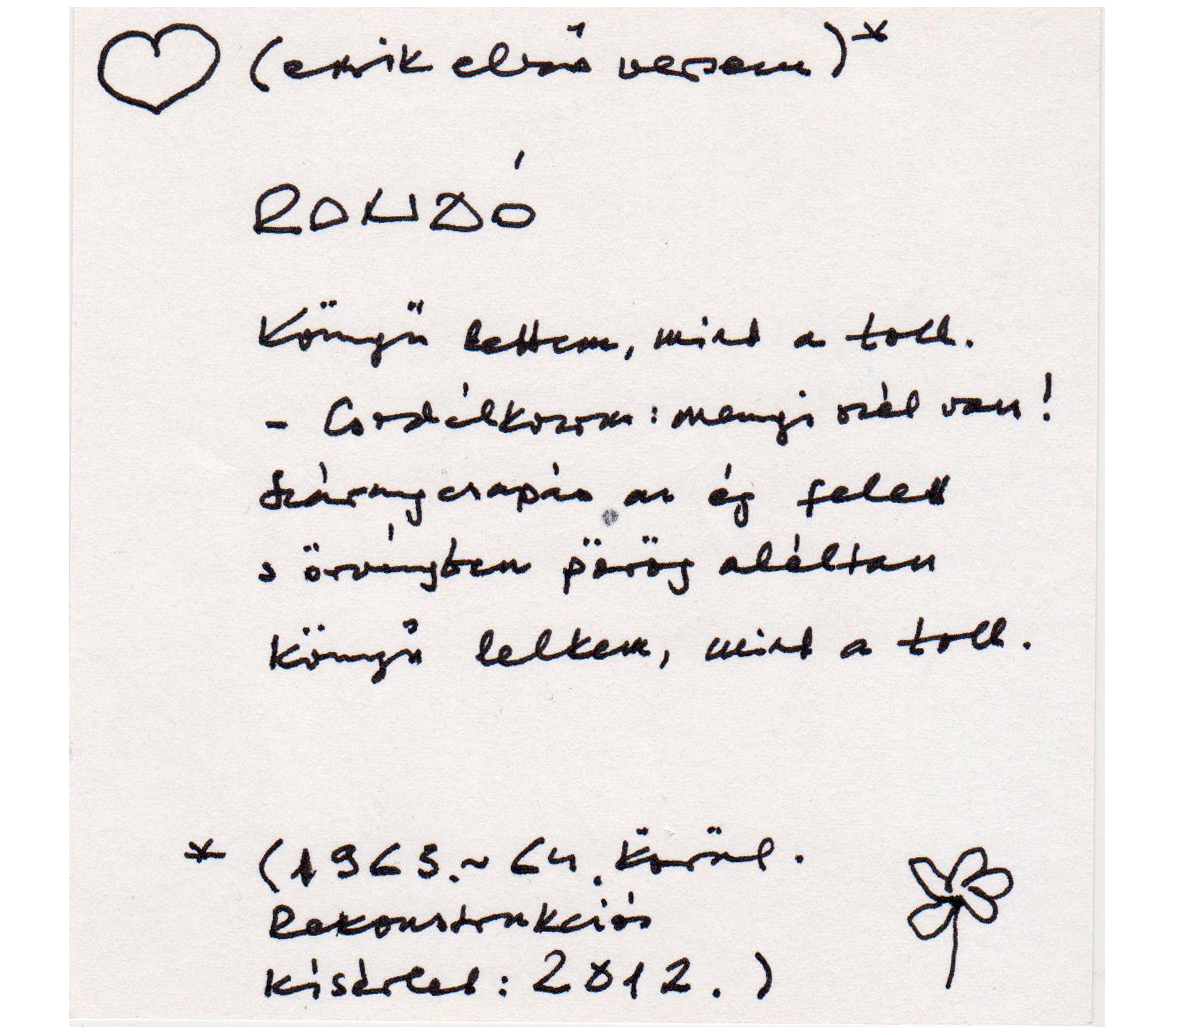 (egyik első versem)*
RONDÓ
Könnyü lettem, mint a toll.
- Csodálkozom: mennyi szél van!
Szárnycsapás az ég felett
s örvényben pörög aléltan
könnyű lelkem, mint a toll.
* (1963.~64. körül.
Rekonstrukciós
kísérlet: 2012.)